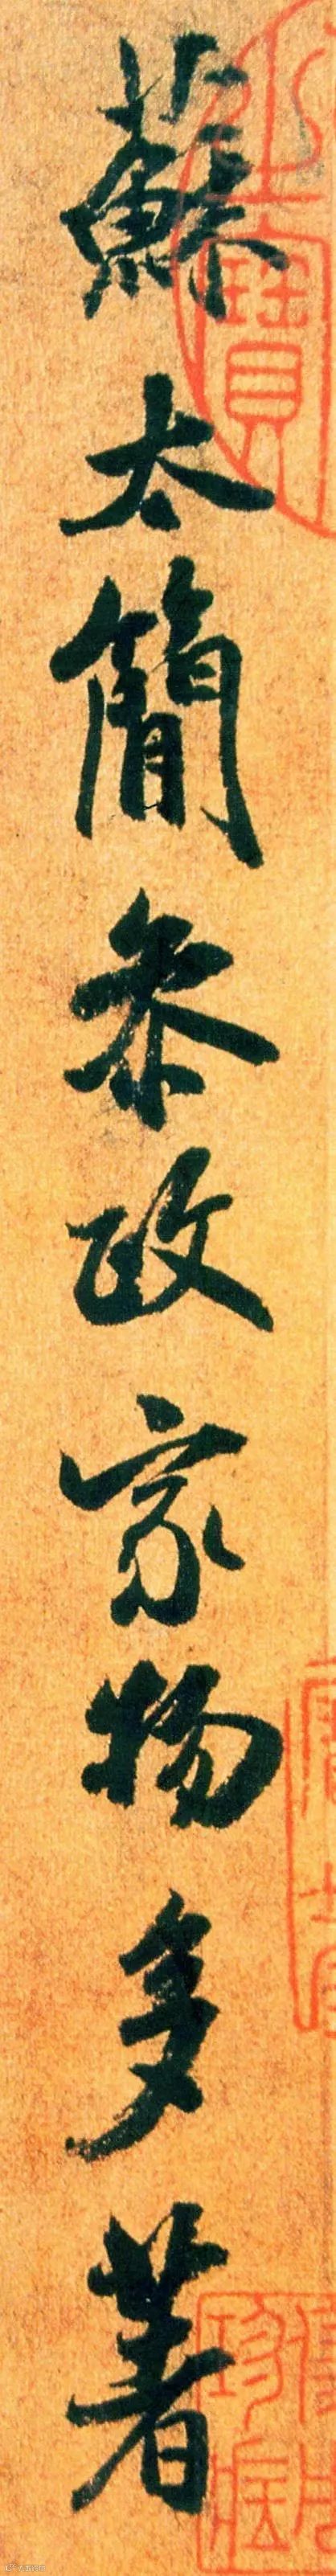 蘇太簡叅政家物多著